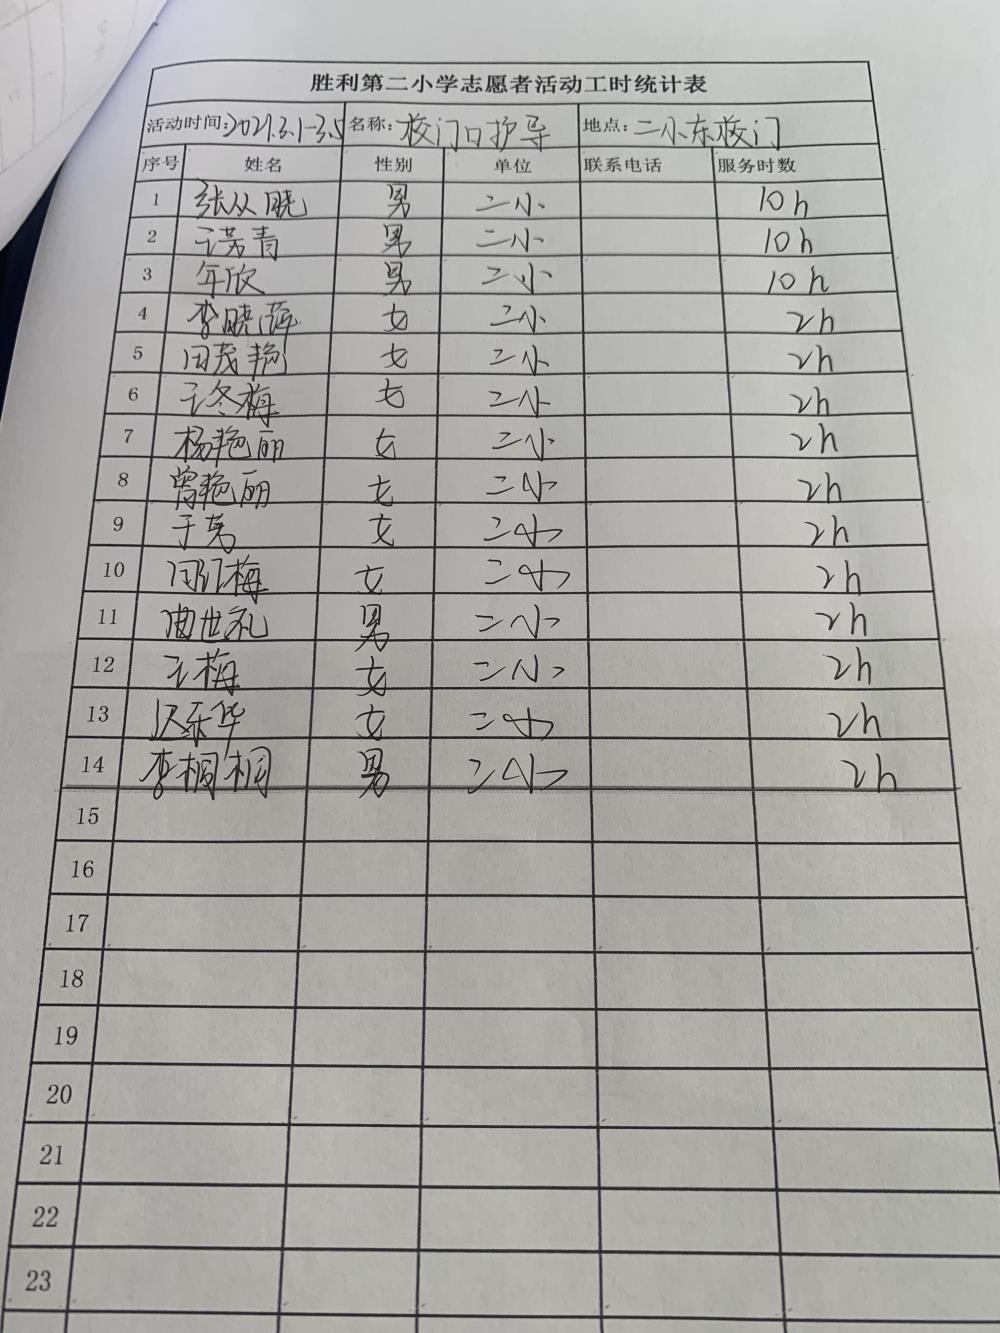 胜利第二小学志愿者活动工时统计表
活动时间:2021.3.1-3.5 名称:校门口护导 地点:二小东校门
序号 姓名 性别 单位 联系电话 服务时数
1 张从晓 男 二小 10h
2 王芳青 男 二小 10h
3 年欣 男 二小 10h
4 李晓萍 女 二小 2h
5 田茂艳 女 二小 2h
6 王冬梅 女 二小 2h
7 杨艳丽 女 二小 2h
8 曾艳丽 女 二小 2h
9 于芳 女 二小 2h
10 梅 女 二小 2h
11 曲世礼 男 二小 2h
12 王梅 女 二小 2h
13 乐华 女 二小 2h
14 李桐桐 男 二小 2h
15
16
17
18
19
20
21
22
23